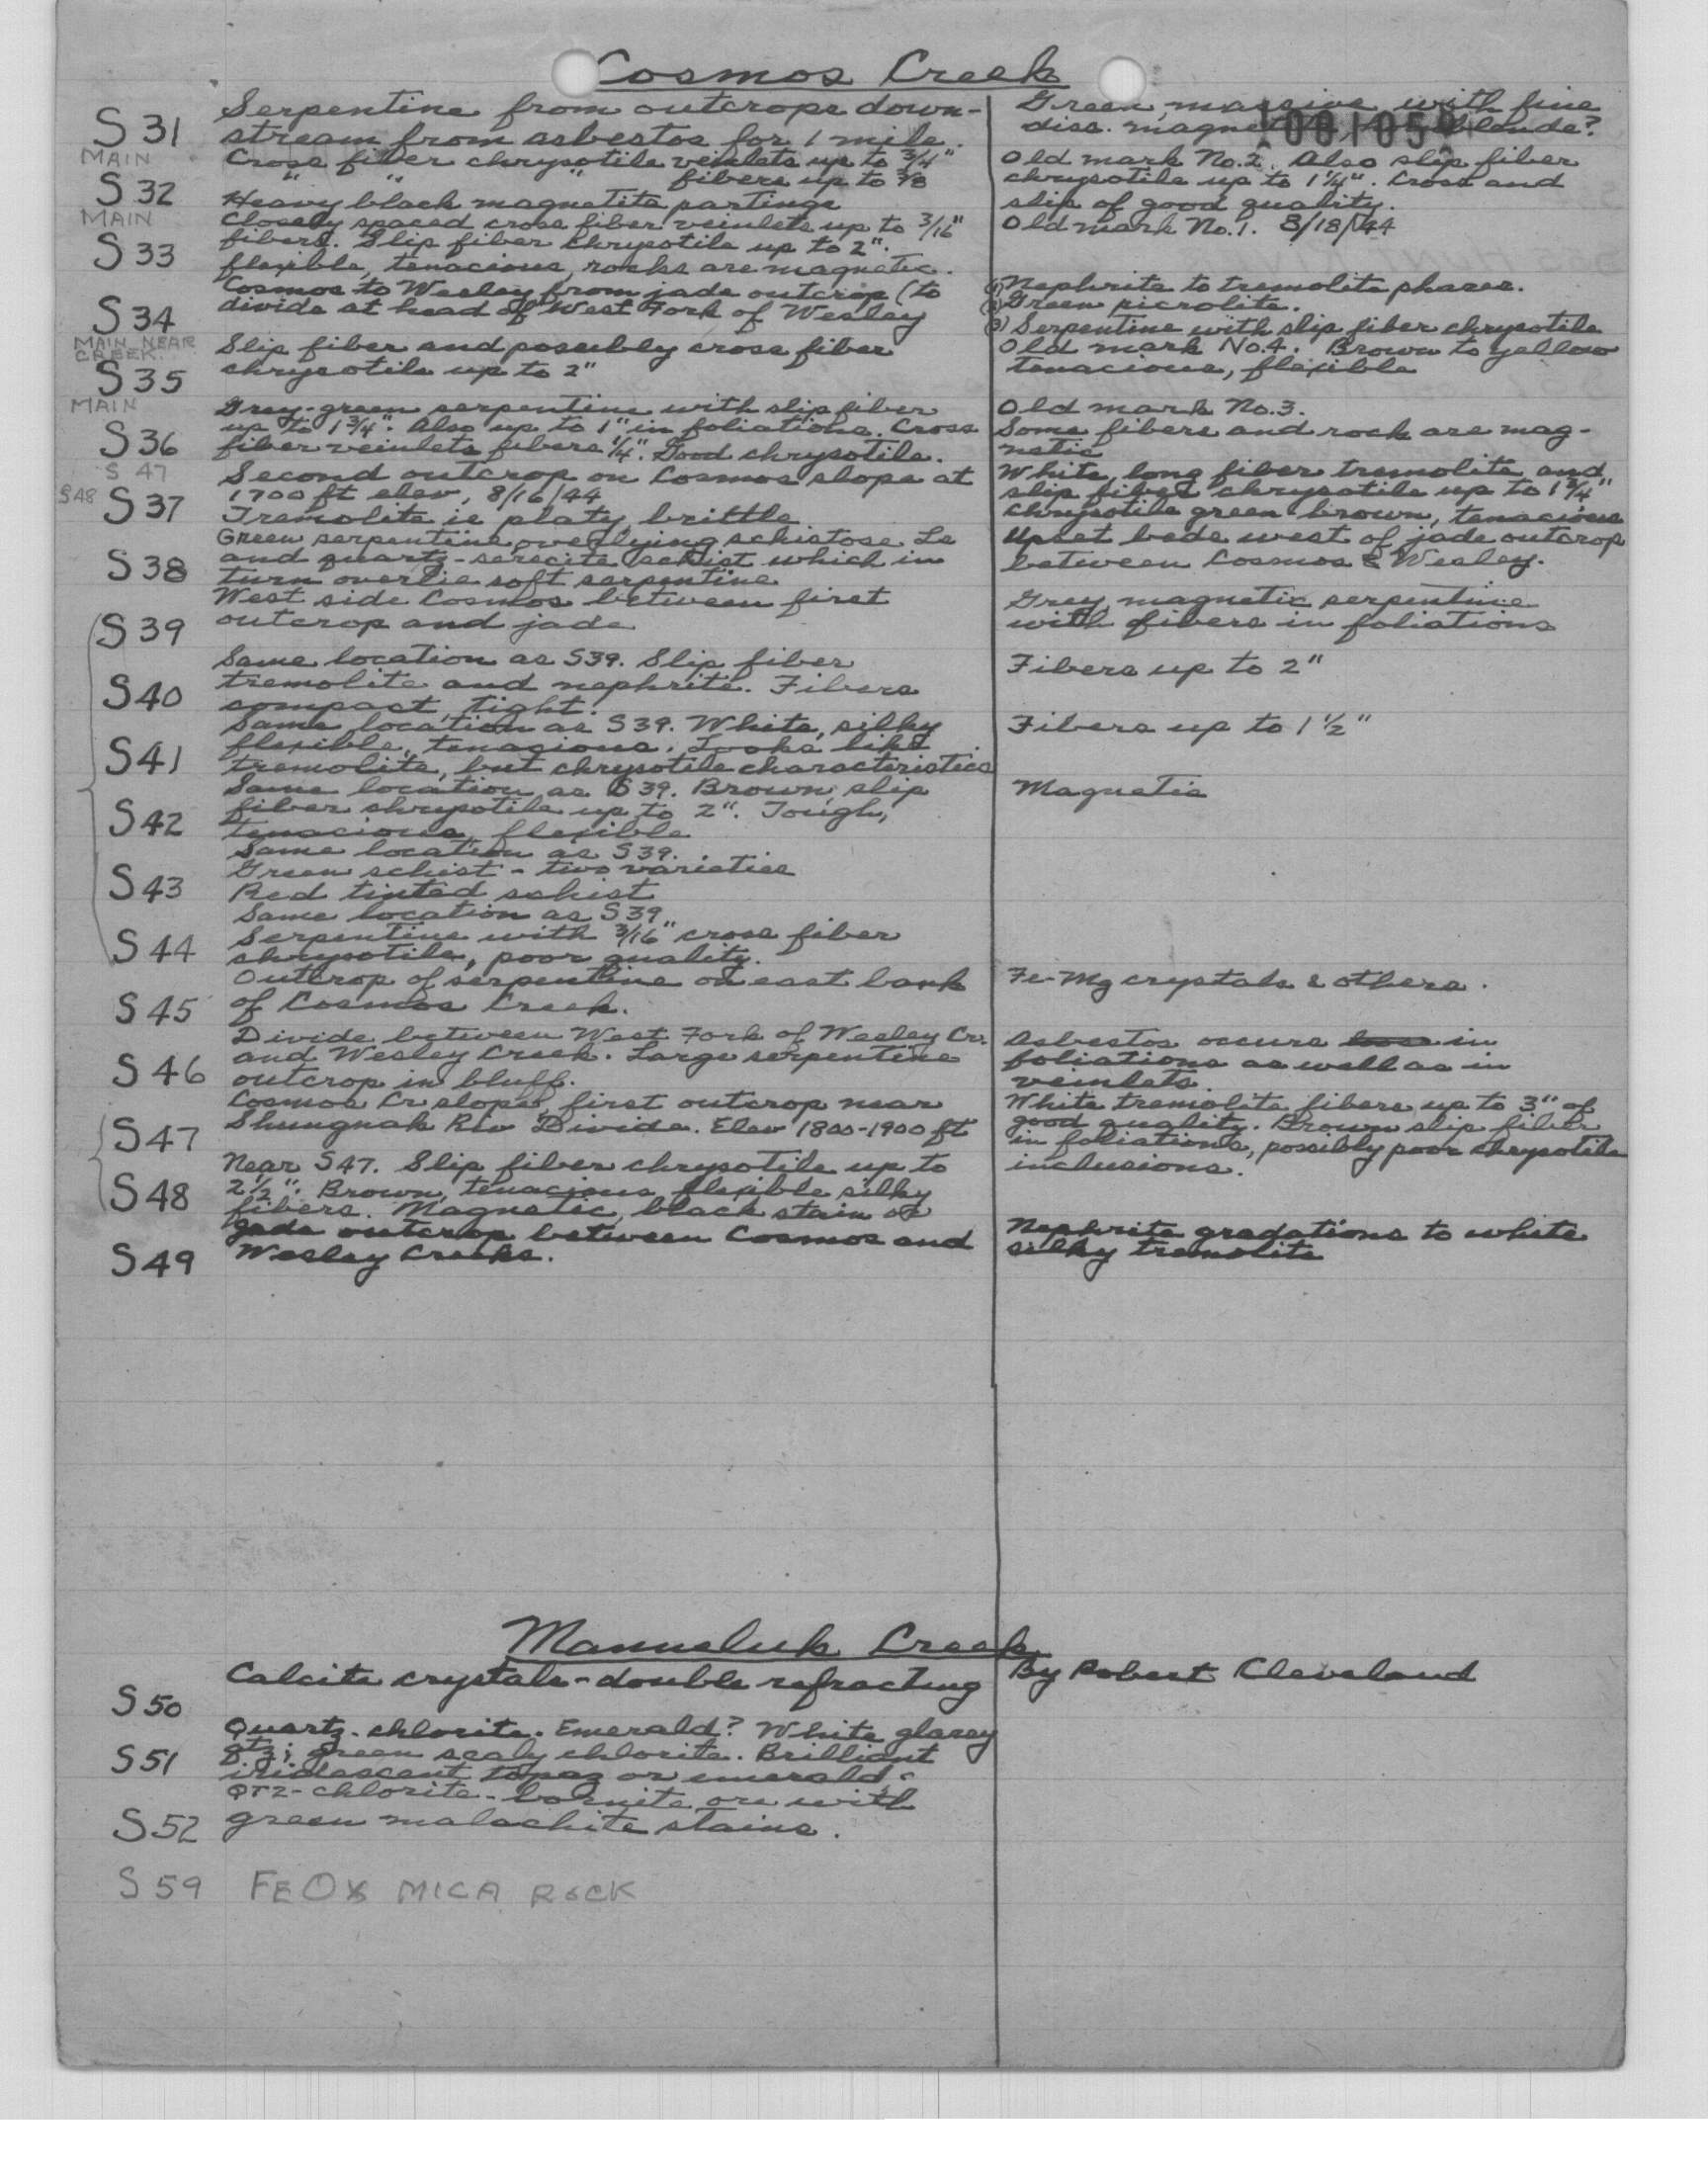 Cosmos Creek
S 31
Serpentine from outcrops down-
stream from asbestos for 1 mile.
Green, massive, with fine
diss. magnetite
MAIN
S 32
Cross fiber chrysotile veinlets up to 3/4"
" " " fibers up to 3/8
Heavy black magnetite partings
Old mark No. 2. Also slip fiber
chrysotile up to 1 1/4". Cross and
slip of good quality.
MAIN
S 33
Closely spaced cross fiber veinlets up to 3/16"
fibers. Slip fiber chrysotile up to 2".
flexible, tenacious, rocks are magnetic.
Old mark No. 1. 8/18/44
S 34
Cosmos to Wesley from jade outcrop (to
divide at head of West Fork of Wesley
(1) Nephrite to tremolite phases.
(2) Green picrolite.
(3) Serpentine with slip fiber chrysotile
MAIN NEAR
CREEK.
S 35
Slip fiber and possibly cross fiber
chrysotile up to 2"
Old mark No. 4. Brown to yellow
tenacious, flexible
MAIN
S 36
Grey-green serpentine with slip fiber
up to 1 3/4". Also up to 1" in foliations. Cross
fiber veinlets fibers 1/4". Good chrysotile.
Old mark No. 3.
Some fibers and rock are mag-
netic
S 47
S48
S 37
Second outcrop on Cosmos slope at
1700 ft elev, 8/16/44
Tremolite is platy, brittle
White, long fiber tremolite and
slip fiber chrysotile up to 1 3/4"
Chrysotile green brown, tenacious
S 38
Green serpentine overlying schistose Ls
and quartz-sericite schist which in
turn overlie soft serpentine
Upset beds west of jade outcrop
between Cosmos & Wesley.
S 39
West side Cosmos between first
outcrop and jade
Grey, magnetic serpentine
with fibers in foliations
S40
Same location as S39. Slip fiber
tremolite and nephrite. Fibers
compact, tight.
Fibers up to 2"
S41
Same location as S39. White, silky
flexible, tenacious. Looks like
tremolite, but chrysotile characteristics
Fibers up to 1 1/2"
S42
Same location as S39. Brown, slip
fiber chrysotile up to 2". Tough,
tenacious, flexible
Magnetic
S43
Same location as S39.
Green schist - two varieties
Red tinted schist
S44
Same location as S39
Serpentine with 3/16" cross fiber
chrysotile, poor quality.
S45
Outcrop of serpentine on east bank
of Cosmos Creek.
Fe-Mg crystals & others.
S46
Divide between West Fork of Wesley Cr.
and Wesley Creek. Large serpentine
outcrop in bluff.
Asbestos occurs in
foliations as well as in
veinlets.
S47
Cosmos Cr slope, first outcrop near
Shungnak Riv Divide. Elev 1800-1900 ft
White tremolite fibers up to 3" of
good quality. Brown slip fiber
in foliations, possibly poor chrysotile
inclusions.
S48
Near S47. Slip fiber chrysotile up to
2 1/2". Brown, tenacious flexible silky
fibers. Magnetic, black stain
S49
Jade outcrop between Cosmos and
Wesley Creeks.
Nephrite gradations to white
silky tremolite
Manneluk Creek
S50
Calcite crystals - double refracting
By Robert Cleveland
S51
Quartz-chlorite. Emerald? White glassy
qtz; green scaly chlorite. Brilliant
iridescent topaz or emerald.
S52
QTZ-chlorite-bornite ore with
green malachite stains.
S59 FEOX MICA ROCK